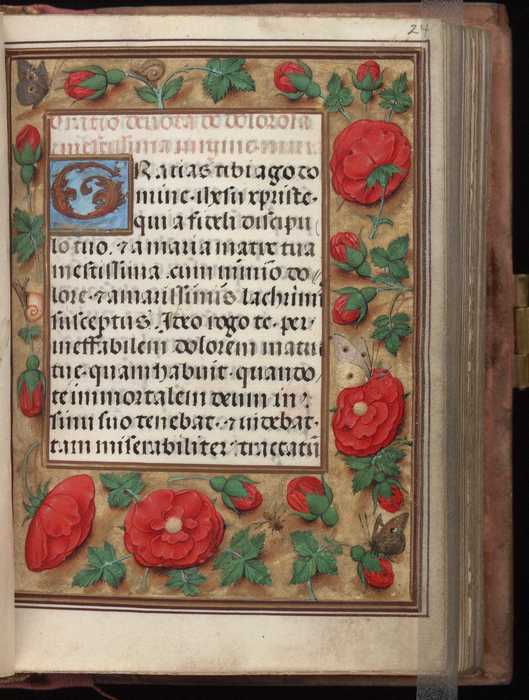 24
Oratio deuota de dolorosa
et mestissima virgine maria
GRatias tibi ago do
mine ihesu xpriste·
qui a fideli discipu
lo tuo· ⁊ a maria matre tua
mestissima cum nimio do
lore· ⁊ amarissimis lachrimis
susceptus· Ideo rogo te· per
ineffabilem dolorem matris
tue· quam habuit· quando
te immortalem deum in
sinu suo tenebat· ⁊ videbat·
tam miserabiliter tractatū